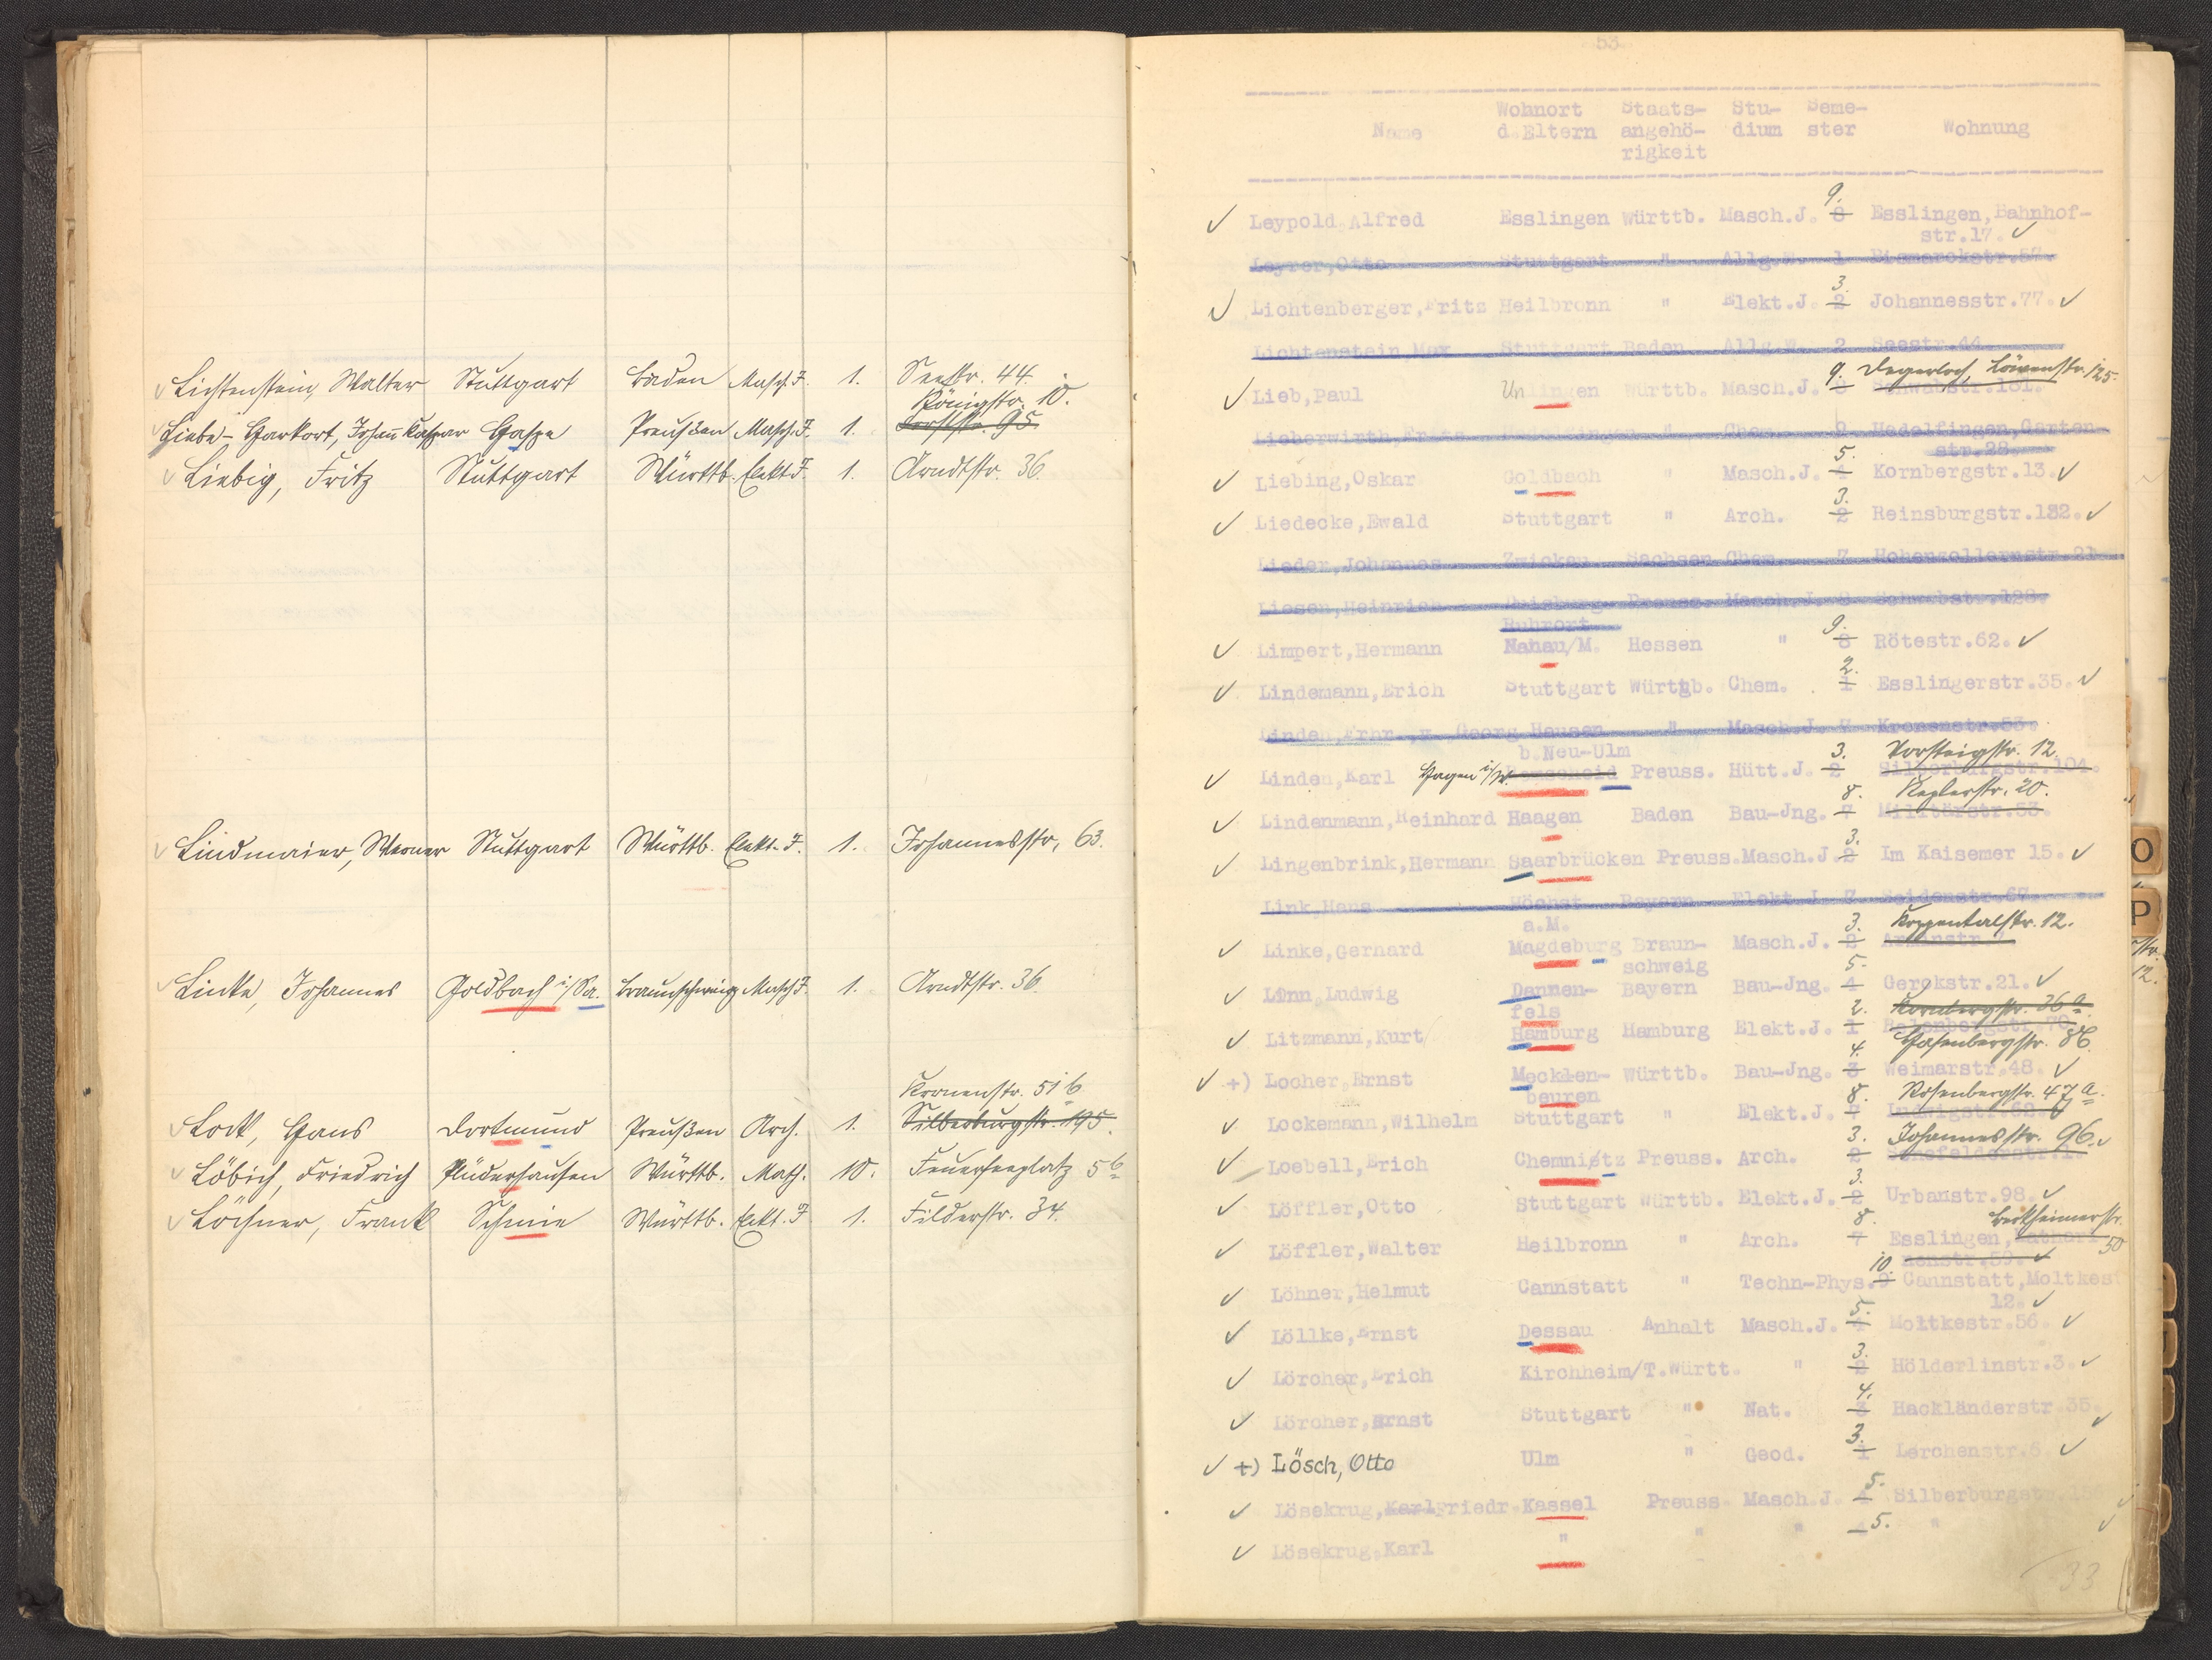 Lichtenstein, Walter Stuttgart Baden Masch. J. 1. Seestr. 44.
Königstr. 10.
Liebe-Harkort, Johañ Kaspar Haspe Preußen Masch. J. 1. Forststr. 95.
Liebig, Fritz Stuttgart Württb. Elekt. J. 1. Arndtstr. 36.
Lindmaier, Werner Stuttgart Württb. Elekt. J. 1. Johannesstr. 63.
Linke, Johannes Goldbach i/Sa. Braunschweig Masch. J. 1. Arndtstr. 36.
Kronenstr. 51 b
Lock, Hans Dortmund Preußen Arch. 1. Silberburgstr. 195.
Löbich, Friedrich Plüderhausen Württb. Math. 10. Feuerseeplatz 5 b
Löchner, Frank Schmie Württb. Elekt. J. 1. Filderstr. 34.
53
Wohnort Staats- Stu- Seme-
Name d.Eltern angehö- dium ster Wohnung
rigkeit
9.
Leypold,Alfred Esslingen Württb. Masch.J. 8 Esslingen,Bahnhof-
str.17.
Leyrer,Otto Stuttgart " Allg.W. 1 Bismarckstr.57.
3.
Lichtenberger,Fritz Heilbronn " Elekt.J. 2 Johannesstr.77.
Lichtenstein,Max Stuttgart Baden Allg.W. 2 Seestr.44
9. Degerloch, Löwenstr. 125.
Lieb,Paul Württb. Masch.J. 8 Schwabstr.181.
Lieberwirth,Fritz Hedelfingen " Chem. Hedelfingen,Garten-
str.28.
5.
Liebing,Oskar Goldbach " Masch.J. 4 Kornbergstr.13.
3.
Liedecke,Ewald Stuttgart " Arch. 2 Reinsburgstr.132.
Lieder,Johannes Zwickau Sachsen Chem. 7 Hohenzollernstr.21
Liesen,Heinrich Duisburg- Preuss. Masch.J. 8 Schwabstr.128.
Ruhrort
9.
Limpert,Hermann Nahau/M. Hessen " 8 Rötestr.62.
2.
Lindemann,Erich Stuttgart Württb. Chem. 1 Esslingerstr.35.
Linden,Frhr.,v.,Georg Hausen " Masch.J. 7 Kronenstr.53.
b.Neu-Ulm
3. Vorsteigstr. 12.
Linden,Karl Hagen i/W. Remscheid Preuss. Hütt.J. 2 Silberburgstr.104.
8. Keplerstr. 20.
Lindenmann,Reinhard Haagen Baden Bau-Jng. 7 Militärstr.53.
3.
Lingenbrink,Hermann Saarbrücken Preuss.Masch.J. 2 Im Kaisemer 15.
Link,Hans Höchst Bayern Elekt.J. 7 Seidenstr.67.
a.M.
3. Koppentalstr. 12.
Linke,Gernard Magdeburg Braun- Masch.J. 2
schweig
5.
Linn,Ludwig Dannen- Bayern Bau-Jng. 4 Gerokstr.21.
fels
2. Kornbergstr. 36 a.
Litzmann,Kurt Hamburg Hamburg Elekt.J. 1
4. Hasenbergstr. 86.
+) Locher,Ernst Mecklen- Württb. Bau-Jng. 3 Weimarstr.48.
beuren
8. Rosenbergstr. 47 a.
Lockemann,Wilhelm Stuttgart " Elekt.J. 7 Ludwigstr.62.
3. Johannesstr. 96.
Loebell,Erich Chemnitz Preuss. Arch. 2
3.
Löffler,Otto Stuttgart Württb. Elekt.J. 2 Urbanstr.98.
8. Berkheimerstr. 50
Löffler,Walter Heilbronn " Arch. 7 Esslingen,Kathari-
nenstr.59.
10.
Löhner,Helmut Cannstatt " Techn-Phys.9 Cannstatt,Moltkest
12.
5.
Löllke,Ernst Dessau Anhalt Masch.J. 4 Moltkestr.56.
3.
Lörcher,Erich Kirchheim/T.Württ. " 2 Hölderlinstr.3.
4.
Lörcher,Ernst Stuttgart " Nat. 3 Hackländerstr.35.
3.
+) Lösch, Otto Ulm " Geod. 1 Lerchenstr.6.
5.
Lösekrug,Karl Friedr. Kassel Preuss. Masch.J. 4 Silberburgstr.156
5.
Lösekrug,Karl " " " "
33
O
P
str.
12.